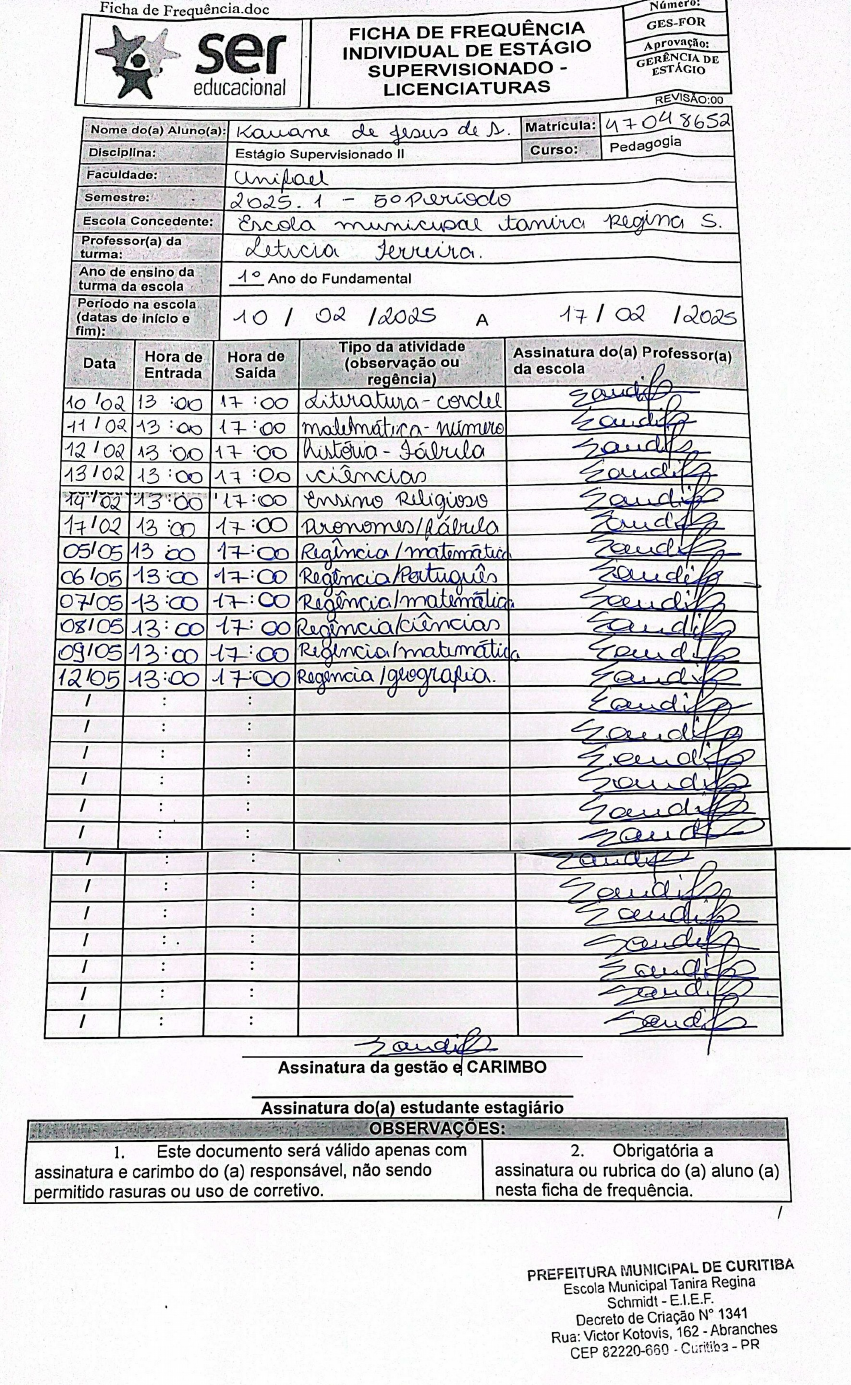 Ficha de Frequência.doc
ser
educacional
FICHA DE FREQUÊNCIA
INDIVIDUAL DE ESTÁGIO
SUPERVISIONADO -
LICENCIATURAS
Número:
GES-FOR
Aprovação:
GERÊNCIA DE
ESTÁGIO
REVISÃO:00
Nome do(a) Aluno(a): Kauane de Jesus de S. Matrícula: 47048652
Disciplina: Estágio Supervisionado II Curso: Pedagogia
Faculdade: Unifael
Semestre: 2025.1 - 5º Período
Escola Concedente: Escola municipal tanira Regina S.
Professor(a) da
turma: Leticia Ferreira.
Ano de ensino da
turma da escola 1º Ano do Fundamental
Período na escola
(datas de início e
fim): 10 / 02 /2025 A 17/ 02 /2025
Data Hora de
Entrada Hora de
Saída Tipo da atividade
(observação ou
regência) Assinatura do(a) Professor(a)
da escola
10/02 13:00 17:00 Literatura-cordel
11/02 13:00 17:00 matemática-número
12/02 13:00 17:00 história-Fábula
13/02 13:00 17:00 ciências
14/02 13:00 17:00 Ensino Religioso
17/02 13:00 17:00 Pronomes/fábula
05/05 13:00 17:00 Regência/matemática
06/05 13:00 17:00 Regência/Português
07/05 13:00 17:00 Regência/matemática
08/05 13:00 17:00 Regência/ciências
09/05 13:00 17:00 Regência/matemática
12/05 13:00 17:00 Regência/geografia.
/ : :
/ : :
/ : :
/ : :
/ : :
/ : :
/ : :
/ : :
/ : :
/ : . :
/ : :
/ : :
/ : :
Assinatura da gestão e CARIMBO
Assinatura do(a) estudante estagiário
OBSERVAÇÕES:
1. Este documento será válido apenas com
assinatura e carimbo do (a) responsável, não sendo
permitido rasuras ou uso de corretivo.
2. Obrigatória a
assinatura ou rubrica do (a) aluno (a)
nesta ficha de frequência.
/
PREFEITURA MUNICIPAL DE CURITIBA
Escola Municipal Tanira Regina
Schmidt - E.I.E.F.
Decreto de Criação N° 1341
Rua: Victor Kotovis, 162 - Abranches
CEP 82220-660 - Curitiba - PR